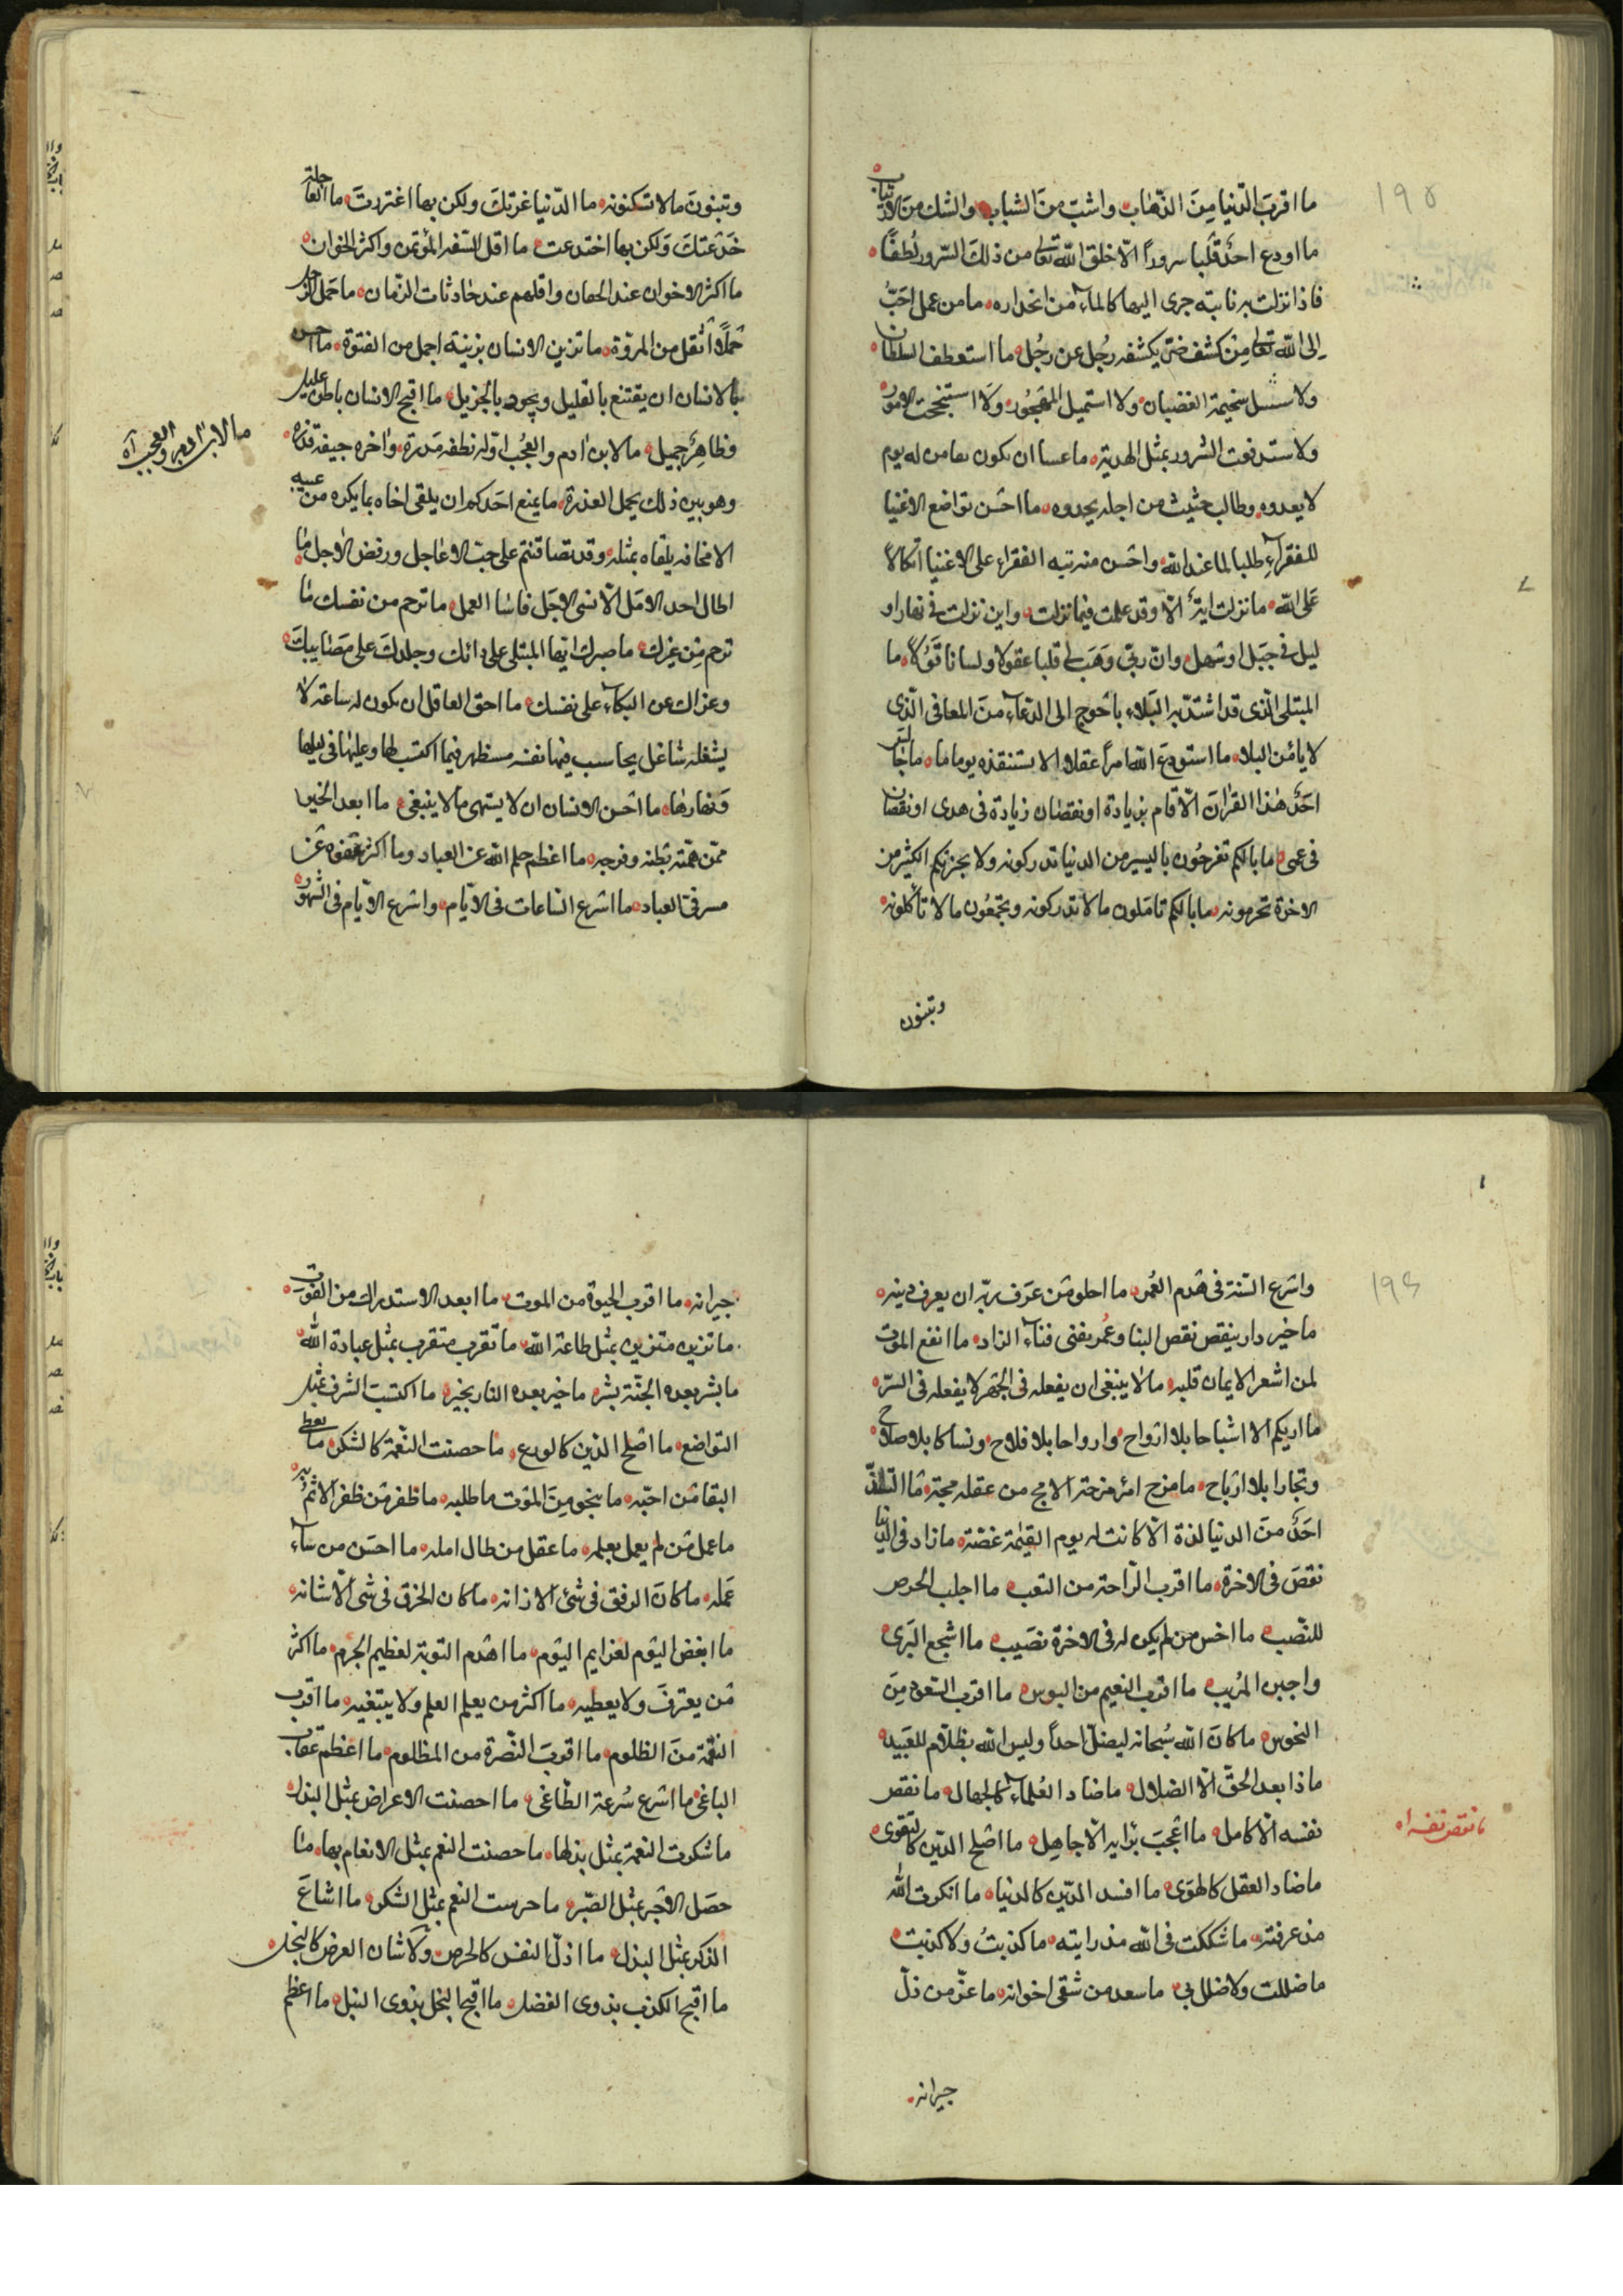 ١٩٥
ما اقرب الدّنيا مِنَ الذّهاب واشبّ منَ الشباب والشك منَ الارتياب
ما اودع احدٌ قلبا سروراً الّا خلق اللّه تعالى من ذلك السّرور لُطفًا
فاذا نزلت به نايبة جرى اليها كالماء من انحداره ما من عمل احَبّ
الى اللّه تعالى مِنْ كشف ضرّ يكشفه رجُل عن رجُل ما استعطف السلطان
ولا استسل سخيمة الغضبان ولا استميل المَهجُور ولا استنجحت الامُور
ولا ستدفعت الشرور بمثل الهدية ما عسا ان يكون بقا من له يوم
لا يعدوه وطالب حثيث من اجله يحدوه ما احسَن تواضع الاغنيا
للفقراءِ طلبا لما عند اللّه واحسن منه تيه الفقراءِ على الاغنيا اتكالاً
عَلى اللّه ما نزلت ايةٌ الّا وقد علمت فيما نزلت واين نزلت في نهار او
ليل في جبَل او سَهل وانّ ربّي وَهَب لي قلبا عقولا ولسانا قَؤلا ما
المبتلى الّذى قد اشتدّ به البَلاء باحْوج الى الدعاء منَ المعافى الّذى
لا يامَن البلاء ما استودعَ اللّه امراً عقلا الا يستنقذه يوما ما ما جالسَ
احَدٌ هٰذا القرانَ الّا قام بزيادة او نقصان زيادة في هدى او نقصان
في عمى ما بالكم تفرحُون باليسير من الدنيا تدركونه ولا يحزنكم الكثير من
الاخرة تحرمونه ما بالكم تامَلون ما لا تدركونه وتجمعُون ما لا تاكلونه
وتبنون
وتبنونَ ما لا تسكنونه ما الدّنيا غرتكَ ولكن بها اغتررتَ ما العاجلة
خَدعَتكَ وَلكن بها اختدعت ما اقل الثقة المؤتمن واكثر الخوان
ما اكثر الاخوان عند الجفان واقلهم عند حادثات الزّمان ما حَمل الرّجل
حَملًا اثقل من المروّة ما تزين الانسان بزينة اجمل من الفتوة ما احسن
بالانسان ان يقتنع بالقليل ويجود بالجزيل ما اقبح الانسان باطن عليل
وظاهِرٌ جميل ما لابن ادم والعجُب اوّله نطفة مَدرة واخره جيفة قذرة
وهو بين ذلك يحمل العذرة ما يمنع احَدكم ان يلقى اخاه بما يكره من عيبه
الا مخافه يلقاه بمثله وقد تصافيتم على حبّ العاجل ورفض الاجل ما
اطال احد الامَل الّا نسى الاجَل فاسا العمل ما ترحم من نفسك ما
ترحم مِن غيرك ما صبرك ايّها المبتلى على دائك وجلدك على مَصايبكَ
وعزاك عن البكاءِ على نفسك ما احق العاقل ان يكون له ساعة لا
يشغله شاغل يحاسب فيها نفسه فيما اكتسب لها وعليها في ليلها
وَنهارها ما احسن الانسان ان لا يشتهى ما لا ينبغى ما ابعد الخير
ممّن همّته بَطنه وفرجه ما اعظم حلم اللّه عن العباد وما اكثر عفوه عن
مسرفى العباد ما اسرع الساعات في الايّام واسرع الايّام في الشهور
ما لابن ادم والعجب آه
١٩٤
واسرع السّنة في هَدم العُمر ما احلومَن عَرَف ربّه ان يعرف دينه
ما خير دار ينقص نقص البنا وعُمر يفنى فناءَ الزاد ما انفع الموت
لمن اشعر الايمان قلبه ما لا ينبغى ان يفعله في الجَهر لا يفعله في السرّ
ما اريكم الا اشباحا بلا ارواح وارواحا بلا فلاح ونساكا بلا صلاح
وتجارا بلا ارباح ما مزح امرٌ مزحة الا مج من عقله مجة ما التذّ
احَدٌ منَ الدنيا لذة الّا كانت له يوم القيٰمة غصّة ما زاد في الدنيا
نقصَ في الاخرة ما اقرب الرّاحة من التعب ما اجلب الحرص
للنّصب ما اخس من لم يكن له في الاخرة نصَيب ما اشجع البَرى
واجبن المُريب ما اقرب النعيم من البوس ما اقرب السّعود مِنَ
النحوس ما كانَ اللّه سُبحانه ليضلّ احداً وليس اللّه بظلّام للعَبيد
ما ذا بعد الحقّ الّا الضلال ما ضاد العُلماء كالجهال ما نقص
نفسه الّا كامل ما اعْجبَ برايه الّا جاهِل ما اصْلح الدّين كالتقوى
ما ضاد العقل كالهوَى ما افسد الدّين كالدنيا ما انكرت اللّه
مذ عرفته ما شككت في اللّه مذ رايته ما كذبتُ ولا كذبت
ما ضللت ولا ضلل بي ما سعد من شقى اخوانه ما عزّ من ذلّ
جيرانه
ما نقص نفسه آه
جيرانه ما اقرب الحيوة من الموت ما ابعد الاستدراك من الفَوت
ما تزين متزين بمثل طاعة اللّه ما تقرب متقرب بمثل عبادة اللّه
ما بشر بعده الجنّة بشر ما خير بعده النار بخير ما اكتسبَ الشرف بمثل
التواضع ما اصلح الدين كالورع ما حصنت النّعمة كالشكر ما يعطى
البقا مَن احبّه ما ينجو مِنَ الموت ما طلبه ما ظفر مَن ظفر الاثمُ به
ما عمل مَن لم يعمل بعلمه ما عقل من طال امله ما احسَن من ساءَ
عَمله ما كانَ الرفق في شئ الا زانه ما كان الخرق في شى الّا شانه
ما ابغض اليَوم لعزايم اليَوم ما اهْدم التوبة لعظيم الجرم ما اكثر
مَن يعترفَ ولا يعطيه ما اكثر من يعلم العلم ولا يبتغيه ما اقرب
النقمة منَ الظلوم ما اقربَ النّصرة من المظلوم ما اعظم عقاب
الباغى ما اسرع سُرعة الطّاغى ما احصنت الاعراض بمثل البذل
ما شكرت النعمة بمثل بذلها ما حصنت النعم بمثل الانعام بها ما
حصَل الاجر بمثل الصّبر ما حرست النعم بمثل الشكر ما اشاعَ
الذكر بمثل البذل ما اذلّ النفس كالحرص ولا شان العرض كالبخل
ما اقبح الكذب بذوى الفضل ما اقبح البخل بذوى النبل ما اعظم